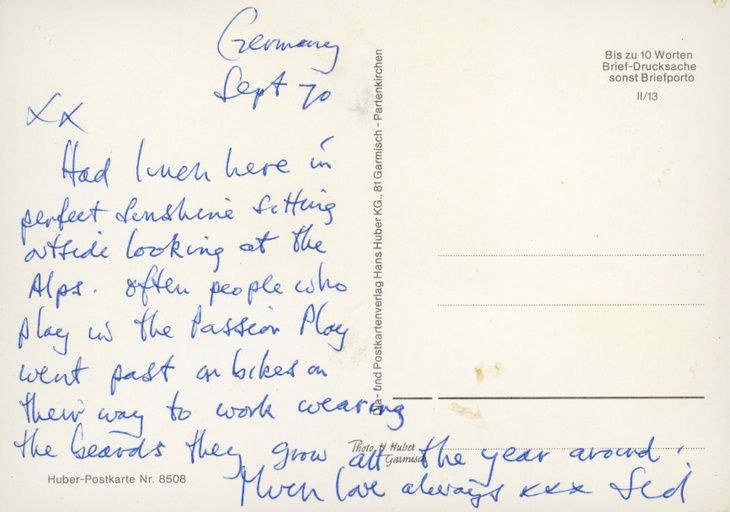 Germany
Sept 70
xx
Had lunch here in
perfect sunshine sitting
outside looking at the
Alps. often people who
play in the Passion Play
went past on bikes on
their way to work wearing
the beards they grow all the year around.
Much love always xxx
Bis zu 10 Worten
Brief-Drucksache
sonst Briefporto
II/13
und Postkartenverlag Hans Huber KG., 81 Garmisch - Partenkirchen
Photo H Huber
Garmisch
Huber-Postkarte Nr. 8508